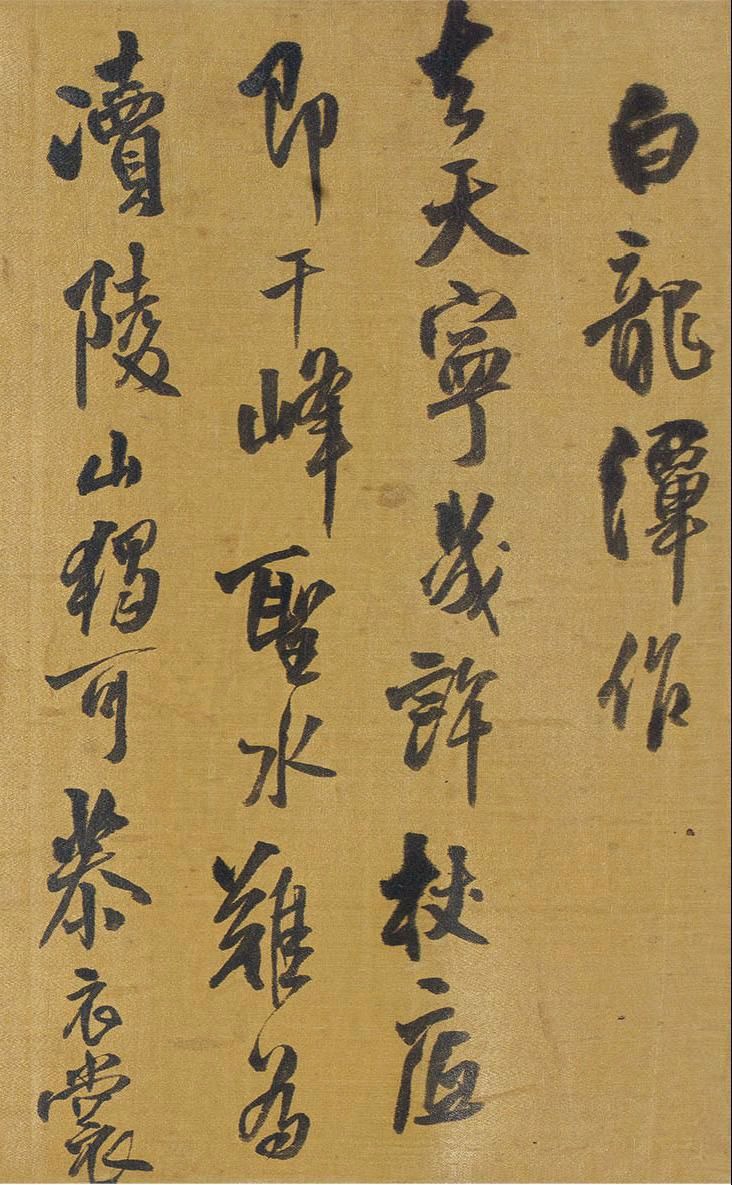 白龍潭作
去天寧幾許杖
即千峰聖水難為
瀆陵山獨可恭衣裳